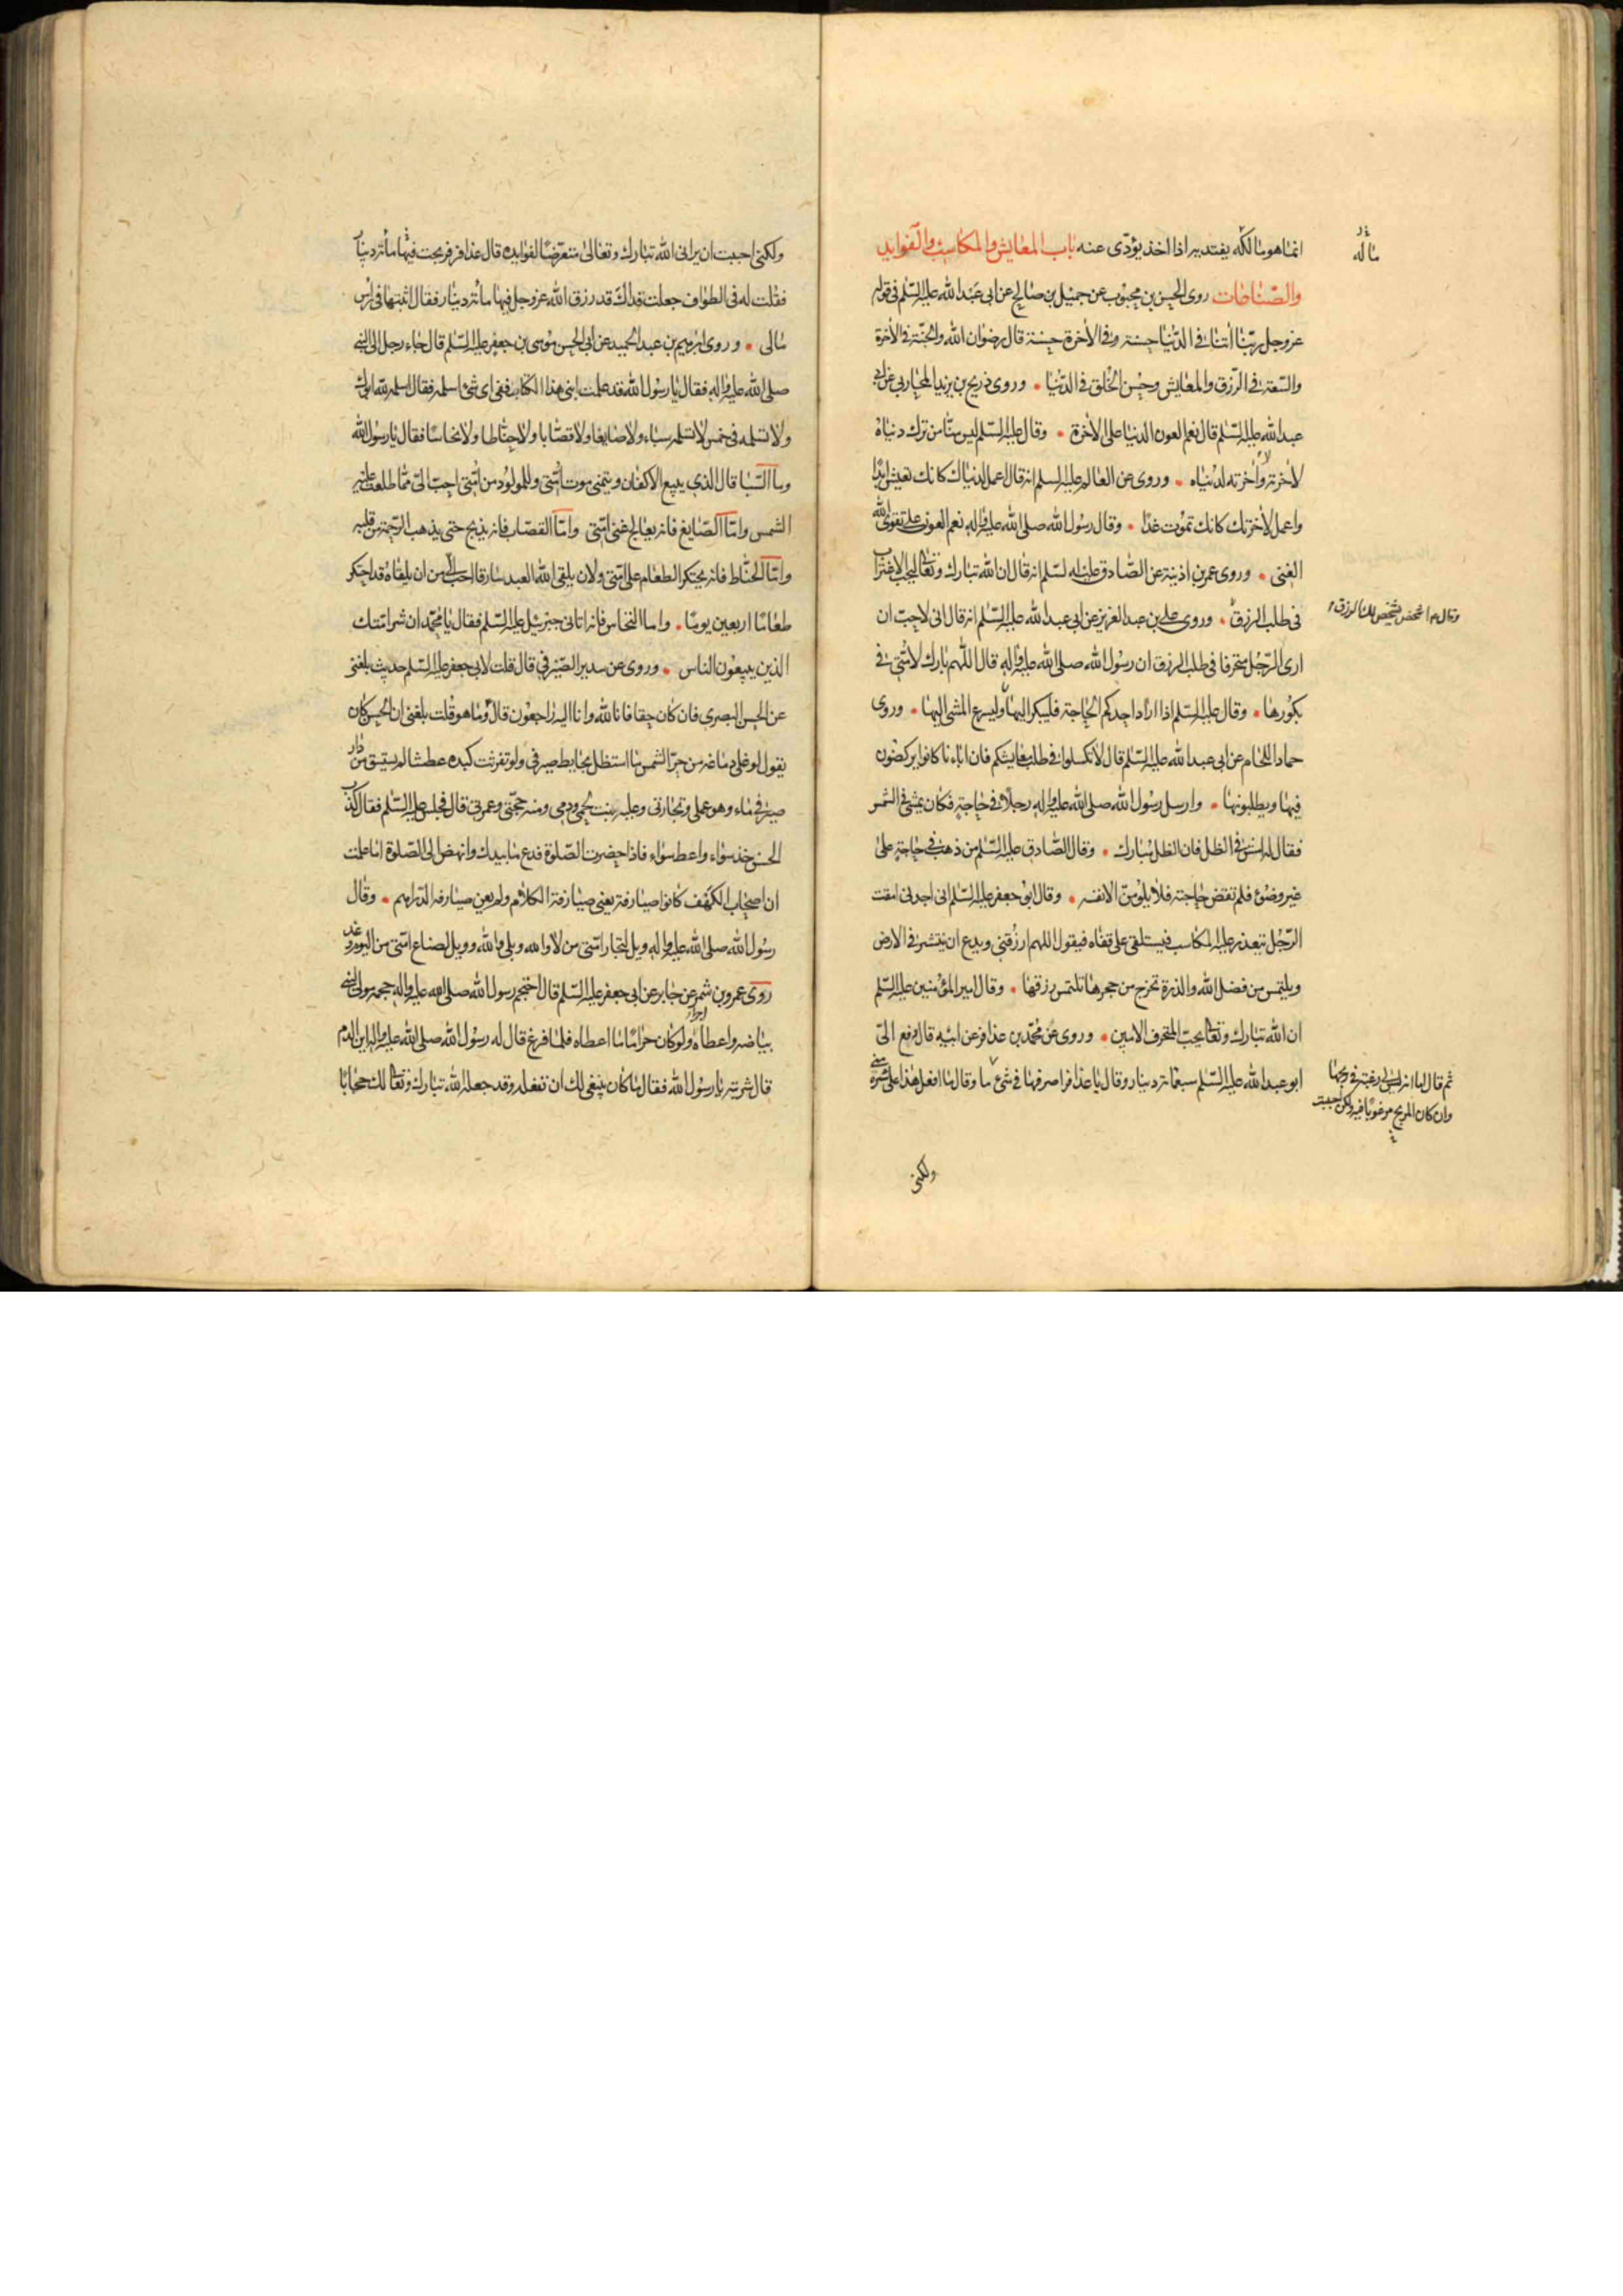 انما هو مالكه يفتد به اذا اخذ يؤدى عنه باب المعايش والمكاسب والفوايد
والصناعات روى الحسن بن محبوب عن جميل بن صالح عن ابى عبد الله عليه السلم فى قوله
عز وجل ربنا اتنا فى الدنيا حسنة وفى الاخرة حسنة قال رضوان الله والجنة فى الاخرة
والسعة فى الرزق والمعايش وحسن الخلق فى الدنيا وروى ذريح بن يزيد المحاربى عن ابى
عبد الله عليه السلم قال نعم العون الدنيا على الاخرة وقال عليه السلم ليس منا من ترك دنياه
لاخرته ولا اخرته لدنياه وروى عن العالم عليه السلم انه قال اعمل لدنياك كانك تعيش ابدا
واعمل لاخرتك كانك تموت غدا وقال رسول الله صلى الله عليه واله نعم العون على تقوى الله
الغنى وروى عمر بن اذينة عن الصادق عليه السلم انه قال ان الله تبارك وتعالى ليحب الاغتراب
فى طلب الرزق وروى على بن عبد العزيز عن ابى عبد الله عليه السلم انه قال انى لاحب ان
ارى الرجل متحرفا فى طلب الرزق ان رسول الله صلى الله عليه واله قال اللهم بارك لامتى فى
بكورها وقال عليه السلم اذا اراد احدكم الحاجة فليبكر اليها وليسرع المشى اليها وروى
حماد اللحام عن ابى عبد الله عليه السلم قال لا تكسلوا فى طلب معايشكم فان اباءنا كانوا يركضون
فيها ويطلبونها وارسل رسول الله صلى الله عليه واله رجلا فى حاجة فكان يمشى فى الشمس
فقال له امش فى الظل فان الظل مبارك وقال الصادق عليه السلم من ذهب فى حاجة على
غير وضوء فلم تقض حاجته فلا يلومن الا نفسه وقال ابو جعفر عليه السلم انى اجدنى امقت
الرجل تتعذر عليه المكاسب فيستلقى على قفاه فيقول اللهم ارزقنى ويدع ان ينتشر فى الارض
ويلتمس من فضل الله والذرة تخرج من جحرها تلتمس رزقها وقال امير المؤمنين عليه السلم
ان الله تبارك وتعالى يحب المحترف الامين وروى عن محمد بن عذافر عن ابيه قال دفع الى
ابو عبد الله عليه السلم سبعمائة دينار وقال يا عذافر اصرفها فى شئ ما وقال ما افعل هذا على شره منى
ماله
وقال ع اشخص يشخص لك الرزق
ثم قال اما انه ليس لى رغبة فى ربحها
وان كان الربح مرغوبا فيه ولكن احببت
ولكنى
ولكنى احببت ان يرانى الله تبارك وتعالى متعرضا لفوايده قال عذافر فربحت فيها مائة دينار
فقلت له فى الطواف جعلت فداك قد رزق الله عز وجل فيها مائة دينار فقال اثبتها فى راس
مالى وروى ابرهيم بن عبد الحميد عن ابى الحسن موسى بن جعفر عليه السلم قال جاء رجل الى النبى
صلى الله عليه واله فقال يا رسول الله قد علمت ابنى هذا الكتاب ففى اى شئ اسلمه فقال اسلمه لله ابوك
ولا تسلمه فى خمس لا تسلمه سباء ولا صايغا ولا قصابا ولا حناطا ولا نخاسا فقال يا رسول الله
وما السبا قال الذى يبيع الاكفان ويتمنى موت امتى وللمولود من امتى احب الى مما طلعت عليه
الشمس واما الصايغ فانه يعالج غنى امتى واما القصاب فانه يذبح حتى يذهب الرحمة من قلبه
واما الحناط فانه يحتكر الطعام على امتى ولان يلقى الله العبد سارقا احب الى من ان يلقاه قد احتكر
طعاما اربعين يوما واما النخاس فانه اتانى جبرئيل عليه السلم فقال يا محمد ان شر امتك
الذين يبيعون الناس وروى عن سدير الصيرفى قال قلت لابى جعفر عليه السلم حديث بلغنى
عن الحسن البصرى فان كان حقا فانا لله وانا اليه راجعون قال وما هو قلت بلغنى ان الحسن كان
يقول لو غلى دماغه من حر الشمس ما استظل بحايط صيرفى ولو تفرثت كبده عطشا لم يستسق من دار
صيرفى ماء وهو عملى وتجارتى وعليه نبت لحمى ودمى ومنه حجتى وعمرتى قال فجلس عليه السلم فقال كذب
الحسن خذ سواء واعط سواء فاذا حضرت الصلوة فدع ما بيدك وانهض الى الصلوة اما علمت
ان اصحاب الكهف كانوا صيارفة يعنى صيارفة الكلام ولم يعن صيارفة الدراهم وقال
رسول الله صلى الله عليه واله ويل لتجار امتى من لا والله وبلى والله وويل لصناع امتى من اليوم وغد
روى عمرو بن شمر عن جابر عن ابى جعفر عليه السلم قال احتجم رسول الله صلى الله عليه واله حجمه مولى لبنى
بياضه واعطاه اجره ولو كان حراما ما اعطاه فلما فرغ قال له رسول الله صلى الله عليه واله اين الدم
قال شربته يا رسول الله فقال ما كان ينبغى لك ان تفعله وقد جعله الله تبارك وتعالى لك حجابا